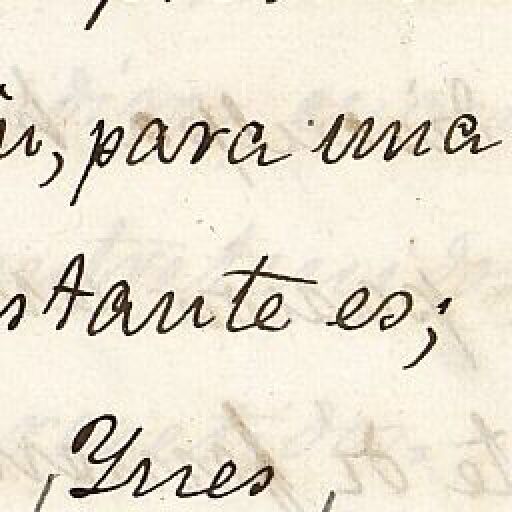 , para una
stante es;
, Ynes,